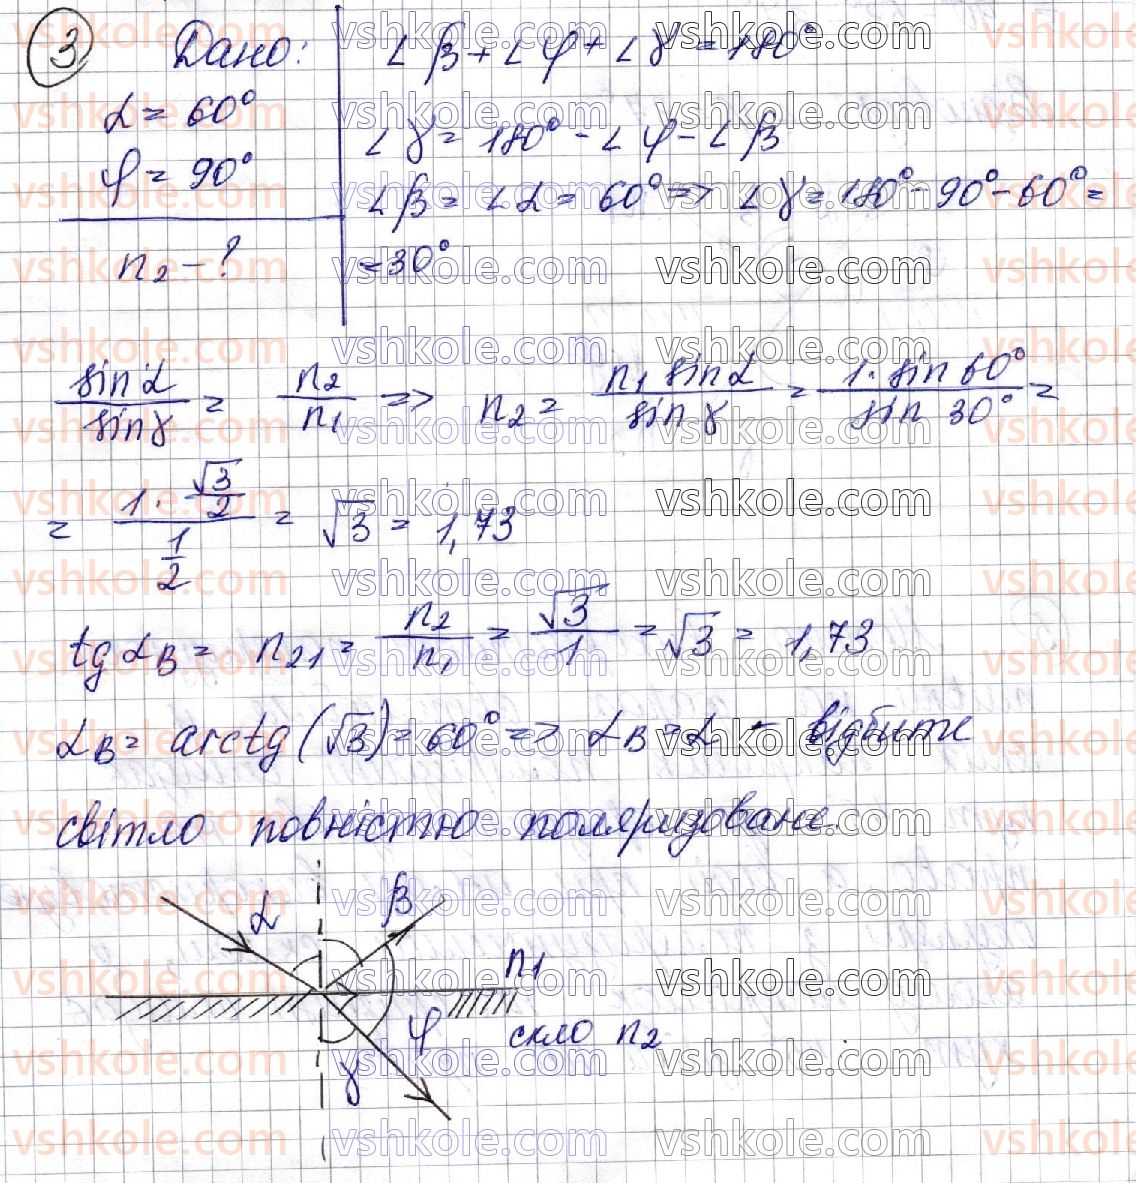 3 Дано:
α = 60°
φ = 90°
n₂ - ?
∠β + ∠φ + ∠γ = 180°
∠γ = 180° - ∠φ - ∠β
∠β = ∠α = 60° => ∠γ = 180° - 90° - 60° =
= 30°
sin α / sin γ = n₂ / n₁ => n₂ = n₁ sin α / sin γ = 1 · sin 60° / sin 30° =
= (1 · √3/2) / (1/2) = √3 = 1,73
tg αB = n₂₁ = n₂ / n₁ = √3 / 1 = √3 = 1,73
αB = arctg (√3) = 60° => αB = α - відбите
світло повністю поляризоване.
α β
n₁
φ скло n₂
γ
vshkole.com